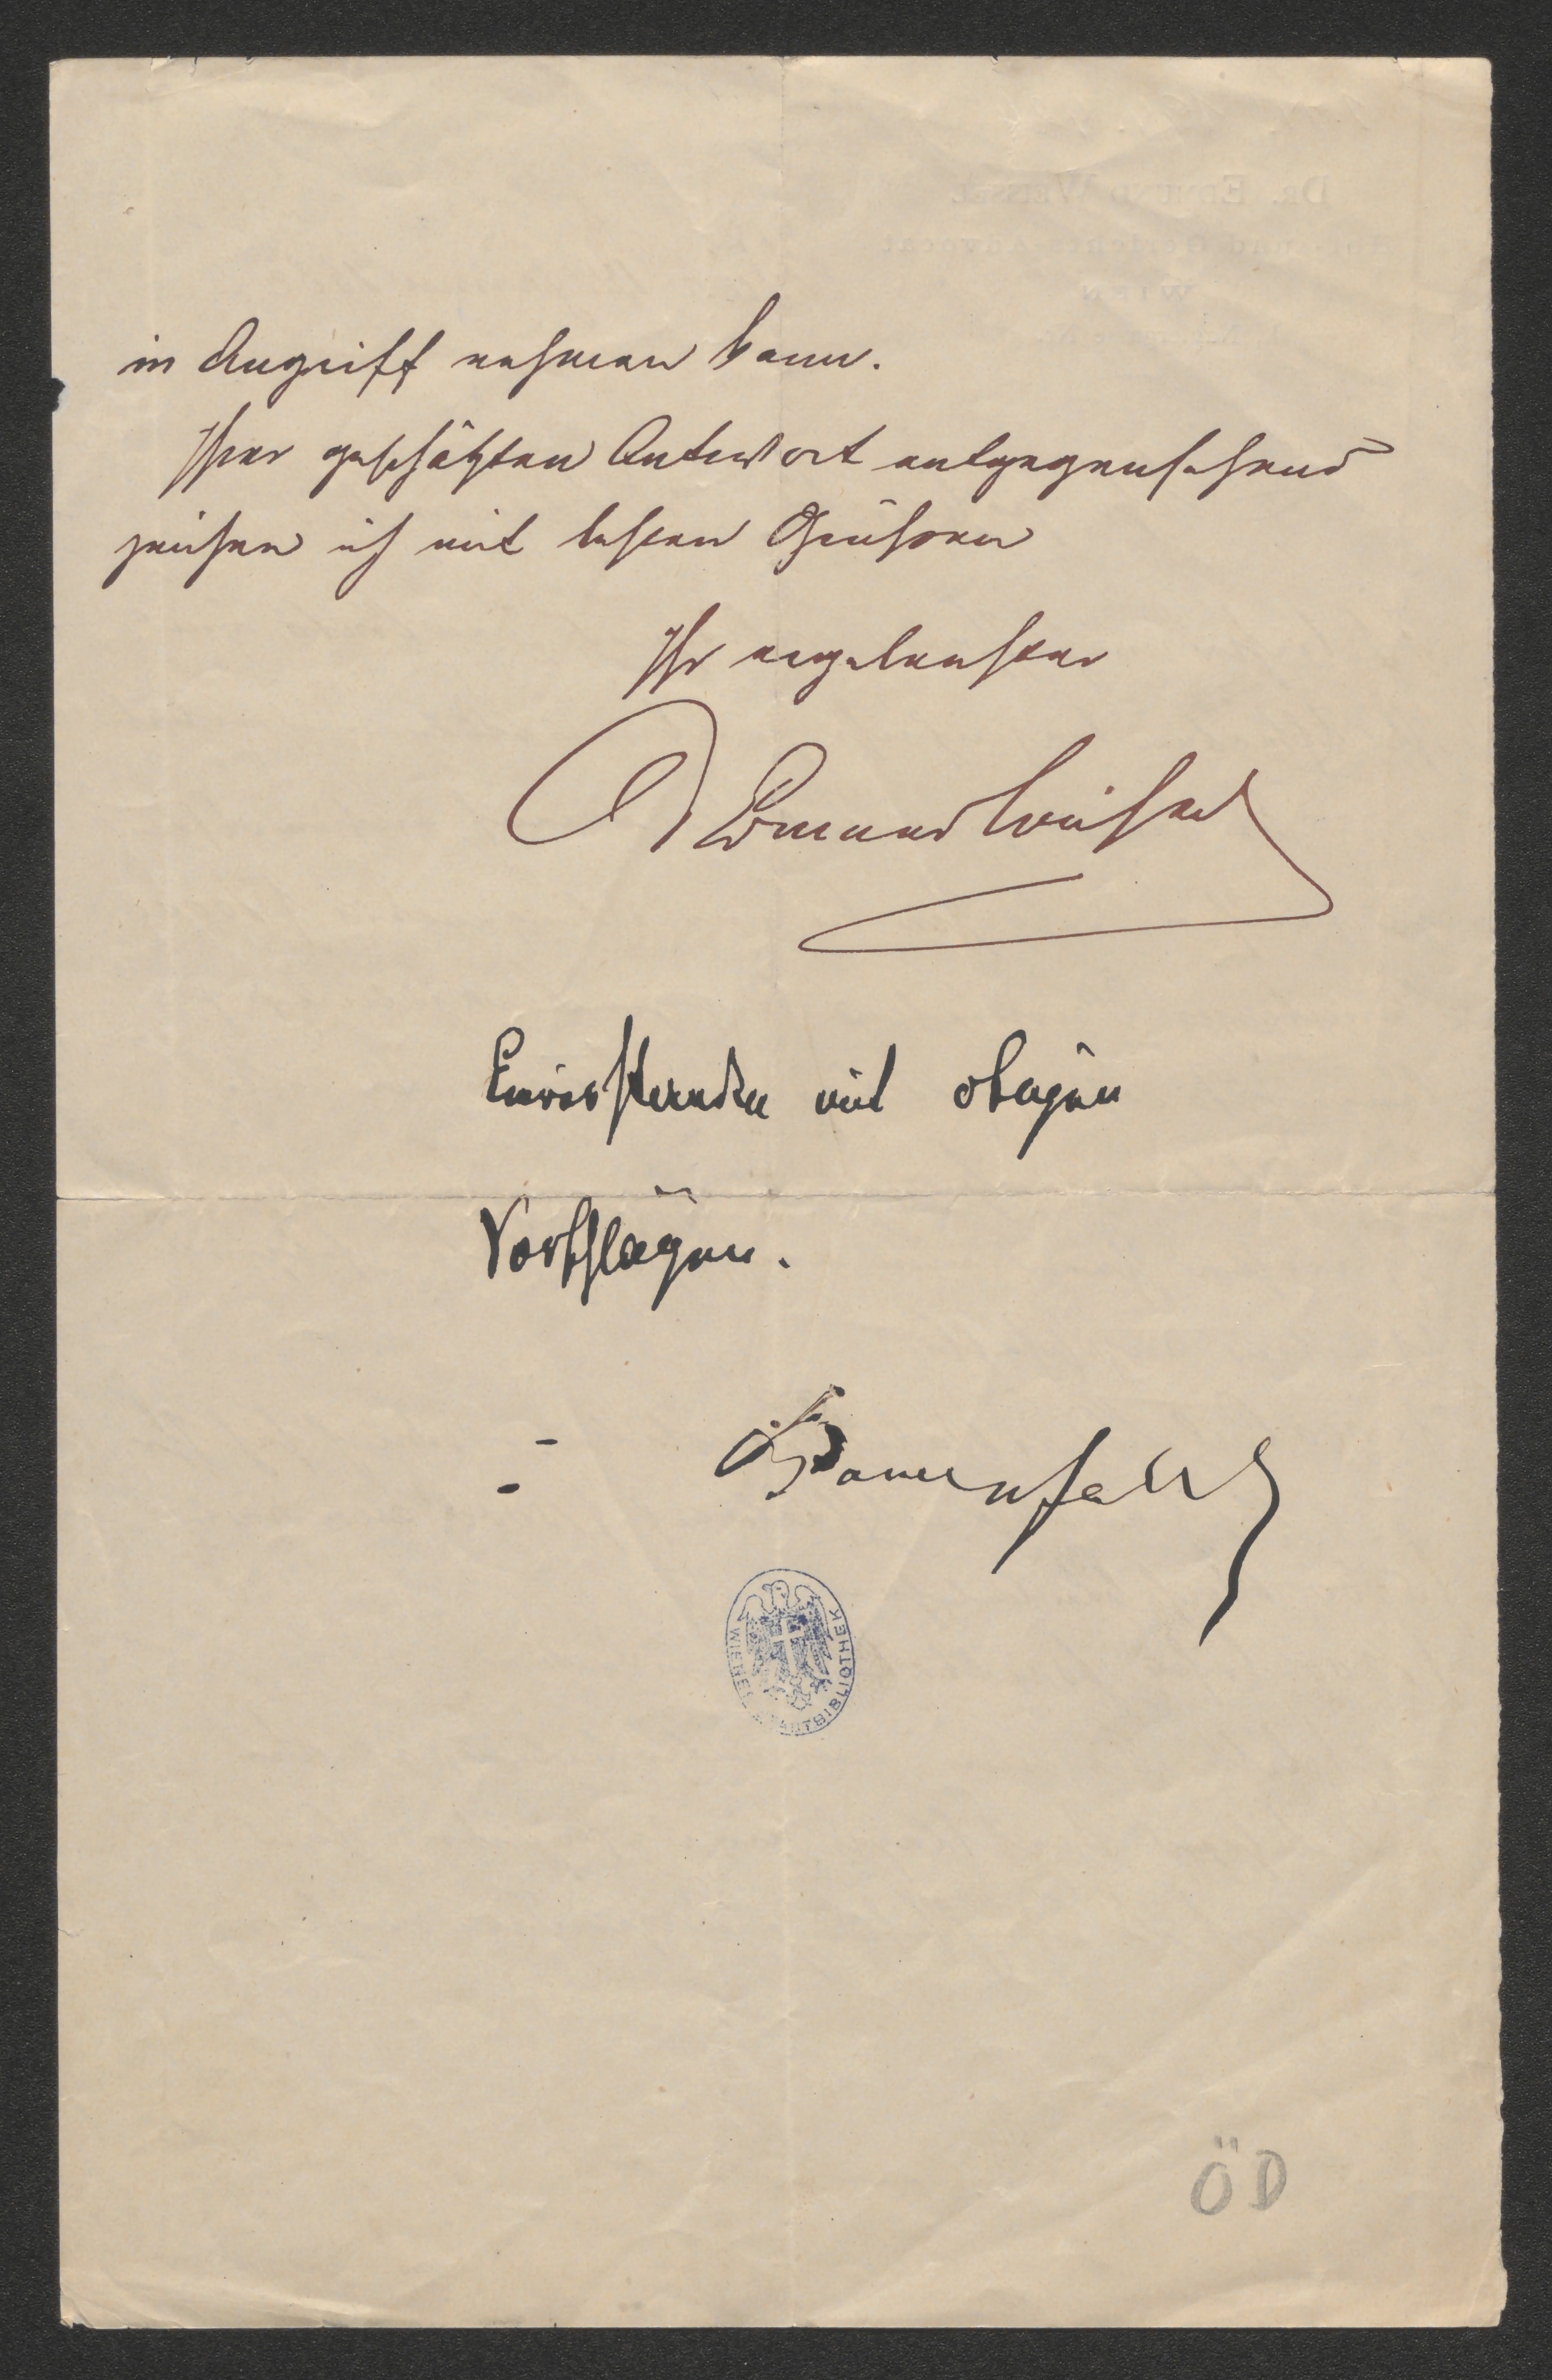 in Angriff nehmen kann.
Ihrer geschätzten Antwort entgegensehend
zeichne ich mit besten Grüßen
Ihr ergebenster
Dr Edmund Weissel
Einverstanden mit obigen
Vorschlägen.
Bauernfeld
WIENER STADTBIBLIOTHEK
ÖD